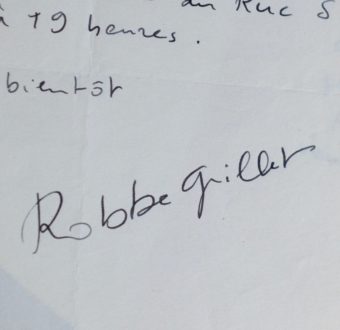 à 19 heures.
bientôt
Robbe Grillet